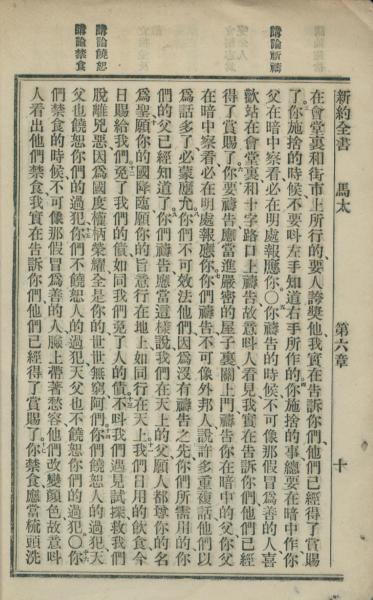 新約全書 馬太 第六章 十
講論祈禱
講論饒恕
講論禁食
在會堂裏和街市上所行的、要人誇奬他、我實在告訴你們、他們已經得了賞賜
了、你施捨的時候、不要呌左手知道右手所作的、你施捨的事、總要在暗中作、你
父在暗中察看、必在明處報應你、〇你禱告的時候、不可像那假冒爲善的人、喜
歡站在會堂裏、和十字路口上禱告、故意呌人看見、我實在告訴你們、他們已經
得了賞賜了、你要禱告、應當進嚴密的屋子裏、關上門、禱告你在暗中的父、你父
在暗中察看、必在明處報應你、你們禱告、不可像外邦人、說許多重複話、他們以
爲話多了必蒙應允、你們不可效法他們、因爲沒有禱告之先、你們所需用的、你
們的父已經知道了、你們禱告、應當這樣說、我們在天上的父、願人都尊你的名
爲聖、願你的國降臨、願你的旨意行在地上、如同行在天上、我們日用的飲食、今
日賜給我們、免了我們的債、如同我們免了人的債、不呌我們遇見試探、救我們
脫離兇惡、因爲國度、權柄、榮耀、全是你的、世世無窮、阿們、你們饒恕人的過犯、天
父也饒恕你們的過犯、你們不饒恕人的過犯、天父也不饒恕你們的過犯、〇你
們禁食的時候、不可像那假冒爲善的人、臉上帶著愁容、他們改變顏色、故意呌
人看出他們禁食、我實在告訴你們、他們已經得了賞賜了、你禁食、應當梳頭洗